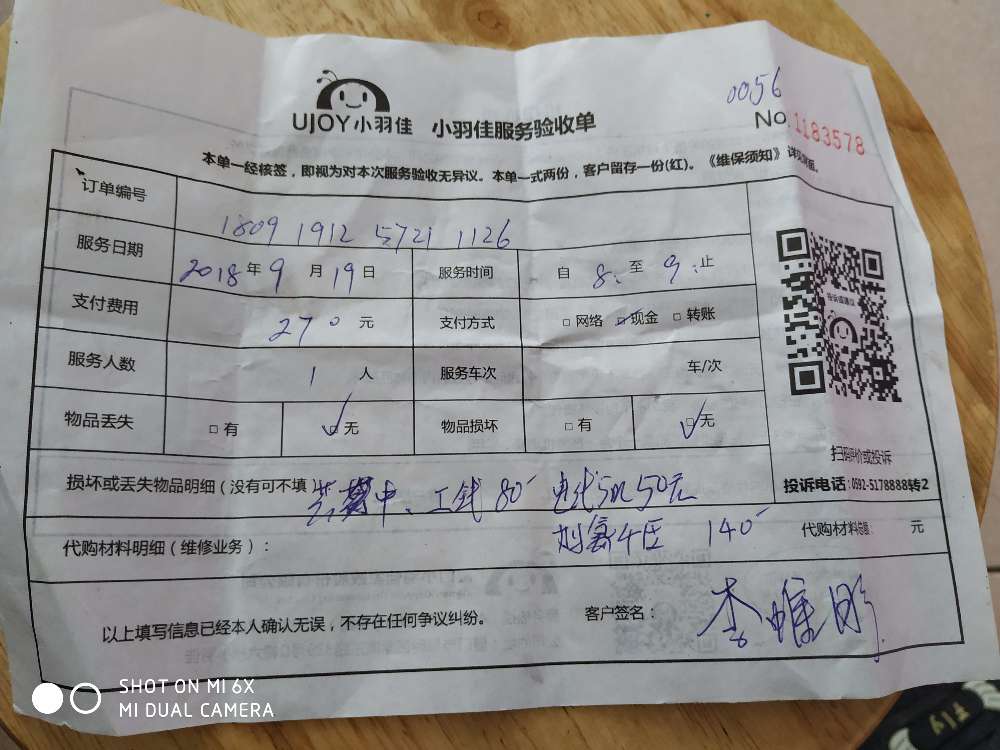 0056
UJOY小羽佳 小羽佳服务验收单
No 1183578
本单一经核签，即视为对本次服务验收无异议。本单一式两份，客户留存一份(红)。《维保须知》
订单编号 1809 1912 5721 1126
服务日期 2018年9月19日 服务时间 自8:至9:止
支付费用 270元 支付方式 □网络 □现金 □转账
服务人数 1人 服务车次 车/次
物品丢失 □有 ☑无 物品损坏 □有 ☑无
扫码评价或投诉
投诉电话:0592-5178888转2
损坏或丢失物品明细（没有可不填） 中、工钱80 电线5m 50元
140
代购材料明细（维修业务）： 代购材料 元
以上填写信息已经本人确认无误，不存在任何争议纠纷。 客户签名： 李
SHOT ON MI 6X
MI DUAL CAMERA
Fly